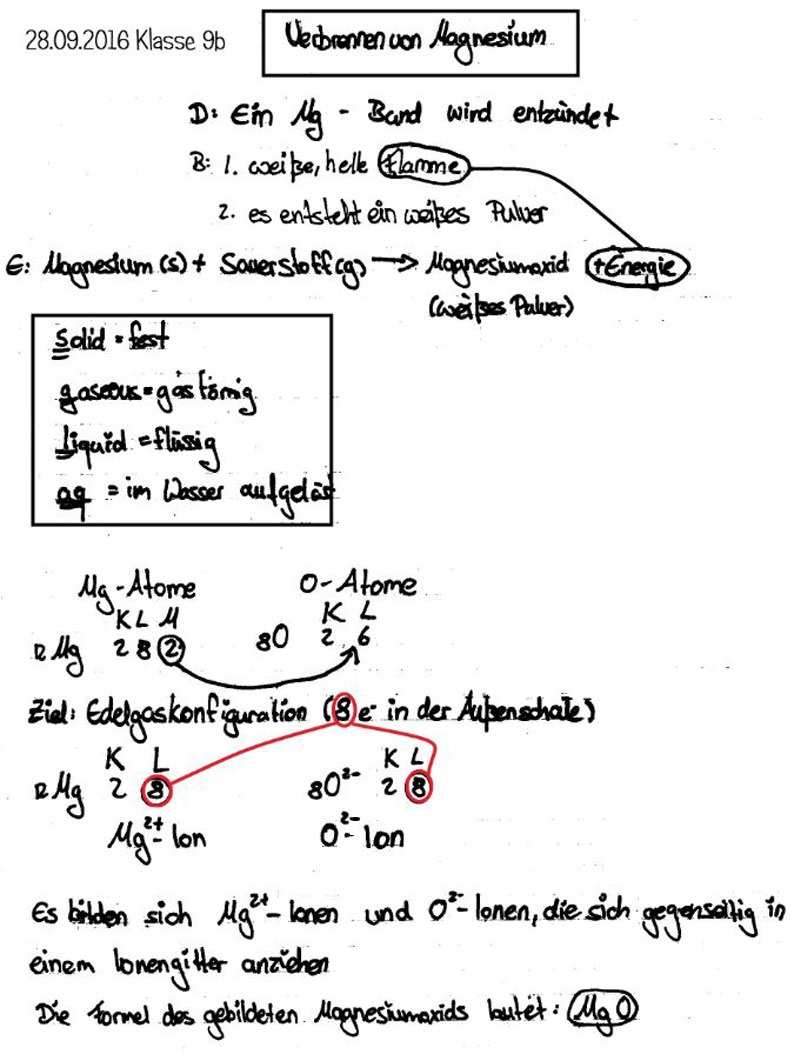 28.09.2016 Klasse 9b
Verbrennen von Magnesium
D: Ein Mg - Band wird entzündet
B: 1. weiße, helle Flamme
2. es entsteht ein weißes Pulver
E: Magnesium (s) + Sauerstoff (g) → Magnesiumoxid + Energie
(weißes Pulver)
solid = fest
gaseous = gasförmig
liquid = flüssig
aq = im Wasser aufgelöst
Mg-Atome O-Atome
K L M K L
12 Mg 2 8 2 8O 2 6
Ziel: Edelgaskonfiguration (8 e⁻ in der Außenschale)
K L K L
12 Mg 2 8 8O²⁻ 2 8
Mg²⁺- Ion O²⁻- Ion
Es bilden sich Mg²⁺- Ionen und O²⁻- Ionen, die sich gegenseitig in
einem Ionengitter anziehen
Die Formel des gebildeten Magnesiumoxids lautet: MgO